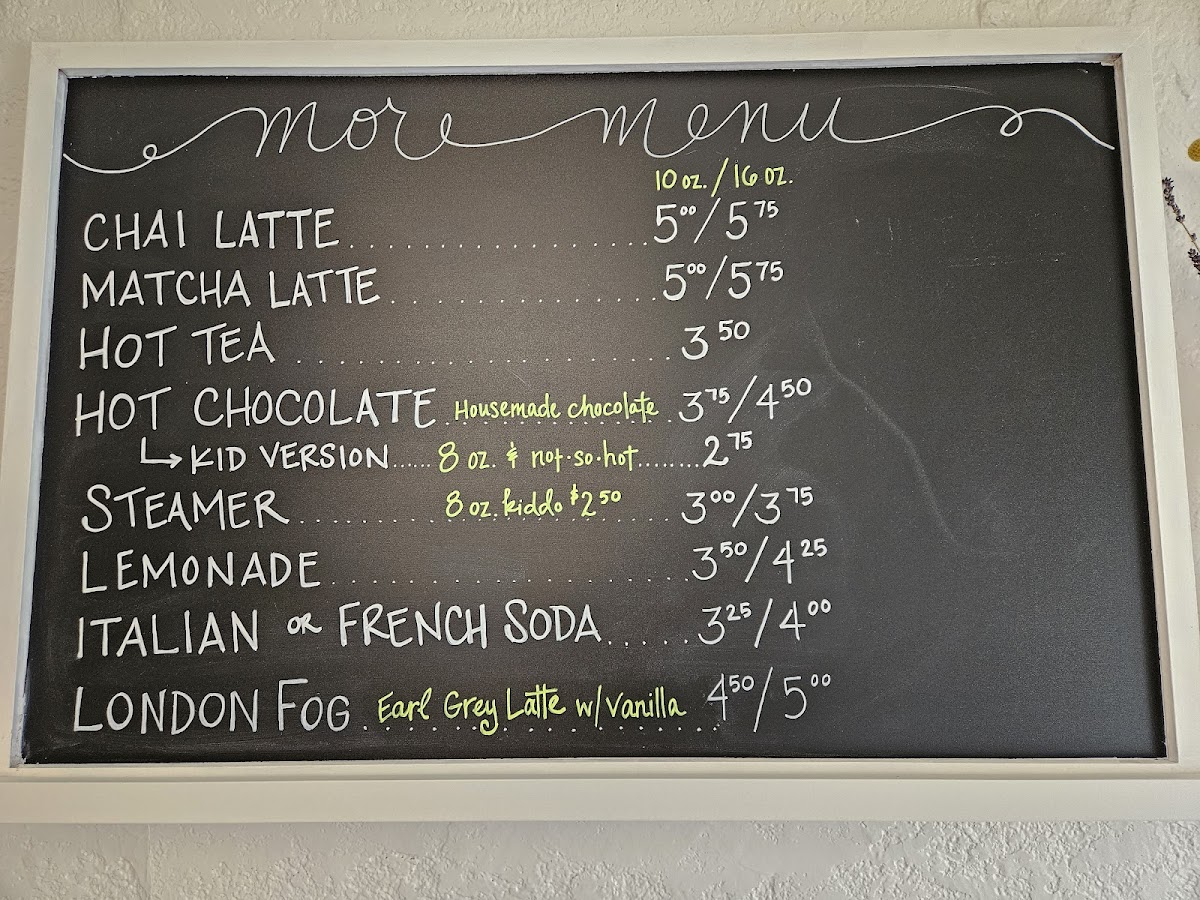 more menu
10 oz. / 16 oz.
CHAI LATTE.......................5⁰⁰/5⁷⁵
MATCHA LATTE....................5⁰⁰/5⁷⁵
HOT TEA..........................3⁵⁰
HOT CHOCOLATE Housemade chocolate 3⁷⁵/4⁵⁰
↳ KID VERSION......8 oz. & not-so-hot........2⁷⁵
STEAMER............8 oz. kiddo $2⁵⁰......3⁰⁰/3⁷⁵
LEMONADE........................3⁵⁰/4²⁵
ITALIAN OR FRENCH SODA......3²⁵/4⁰⁰
LONDON FOG. Earl Grey Latte w/ vanilla 4⁵⁰/5⁰⁰